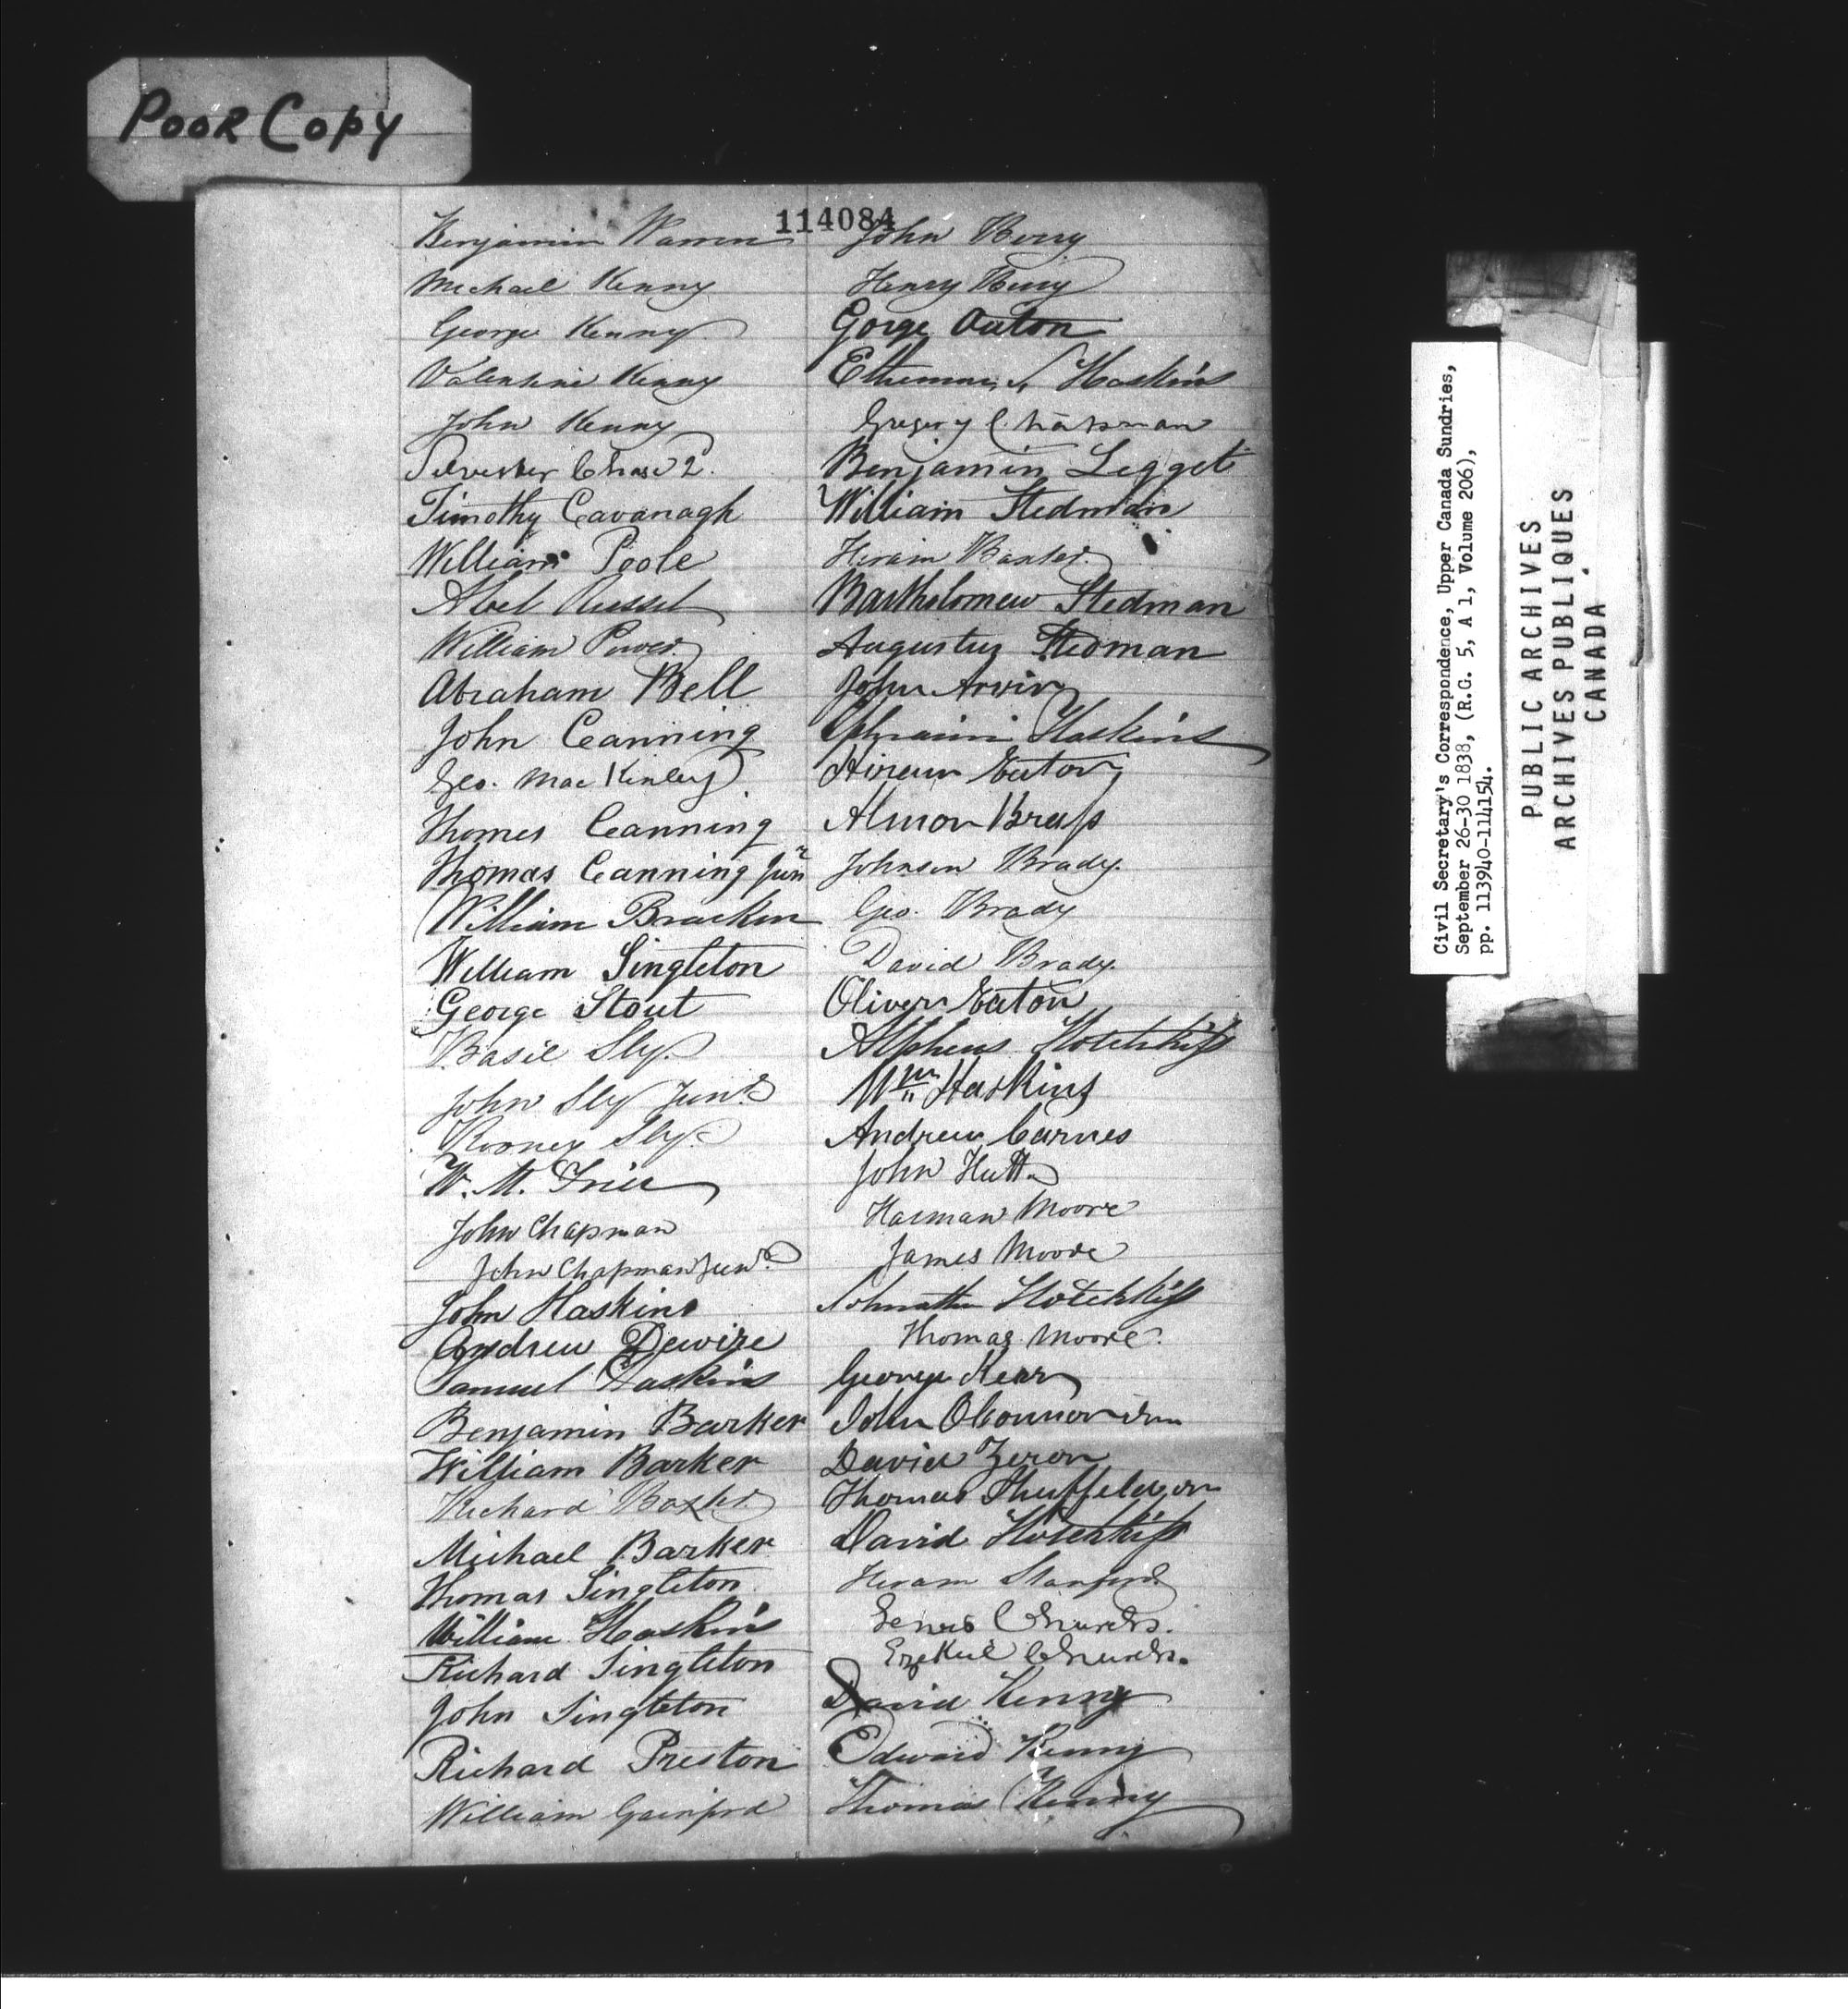 Poor Copy
114084
Benjamin Warren
Michael Kenny
George Kenny
Valentine Kenny
John Kenny
Silvester Chase 2.
Timothy Cavanagh
William Poole
Abel Russel
William Power
Abraham Bell
John Canning
Geo. Mac Kinley
Thomes Canning
Thomas Canning Junr
William Bracken
William Singleton
George Stout
Basil Sly
John Sly Junr
Rooney Sly
W. M.
John Chapman
John Chapman Junr
John Haskins
Andrew Dewire
Samuel Haskins
Benjamin Barker
William Barker
Richard Baxter
Michael Barker
Thomas Singleton
William Haskins
Richard Singleton
John Singleton
Richard Preston
William Gainford
John Berry
Henry Berry
Gorge Oaton
Haskins
Gregory Chapman
Benjamin Legget
William Stedman
Hiram Baxter
Bartholomew Stedman
Augustus Stedman
John Arvin
Ephraim Haskins
Hiram Eaton
Almon Brass
Johnson Brady.
Geo. Brady
David Brady.
Oliver Eaton
Alpheus Hotchkiss
Wm Haskins
Andrew Carnes
John Hutt
Harman Moore
James Moore
Johnathn Hotchkiss
Thomas Moore.
George Kerr
John OConnor
David Zeron
Thomas
David Hotchkiss
Hiram Stanford
Lewis Church.
Ezekiel Church.
David Kenny
Edward Kenny
Thomas Kenny
Civil Secretary's Correspondence, Upper Canada Sundries,
September 26-30 1838, (R.G. 5, A 1, Volume 206),
pp. 113940-114154.
PUBLIC ARCHIVES
ARCHIVES PUBLIQUES
CANADA